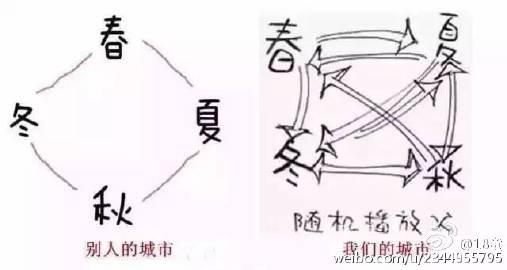 春
冬
夏
秋
别人的城市
春
夏
冬
秋
随机播放
我们的城市
weibo.com/u/2344955795